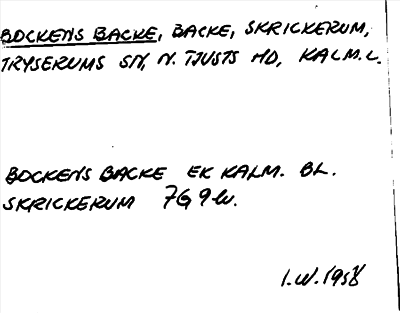 BOCKENS BACKE, BACKE, SKRICKERUM,
TRYSERUMS SN, N. TJUSTS HD, KALM.L.
BOCKENS BACKE EK KALM. BL.
SKRICKERUM 7G 9 w.
I.W. 1958